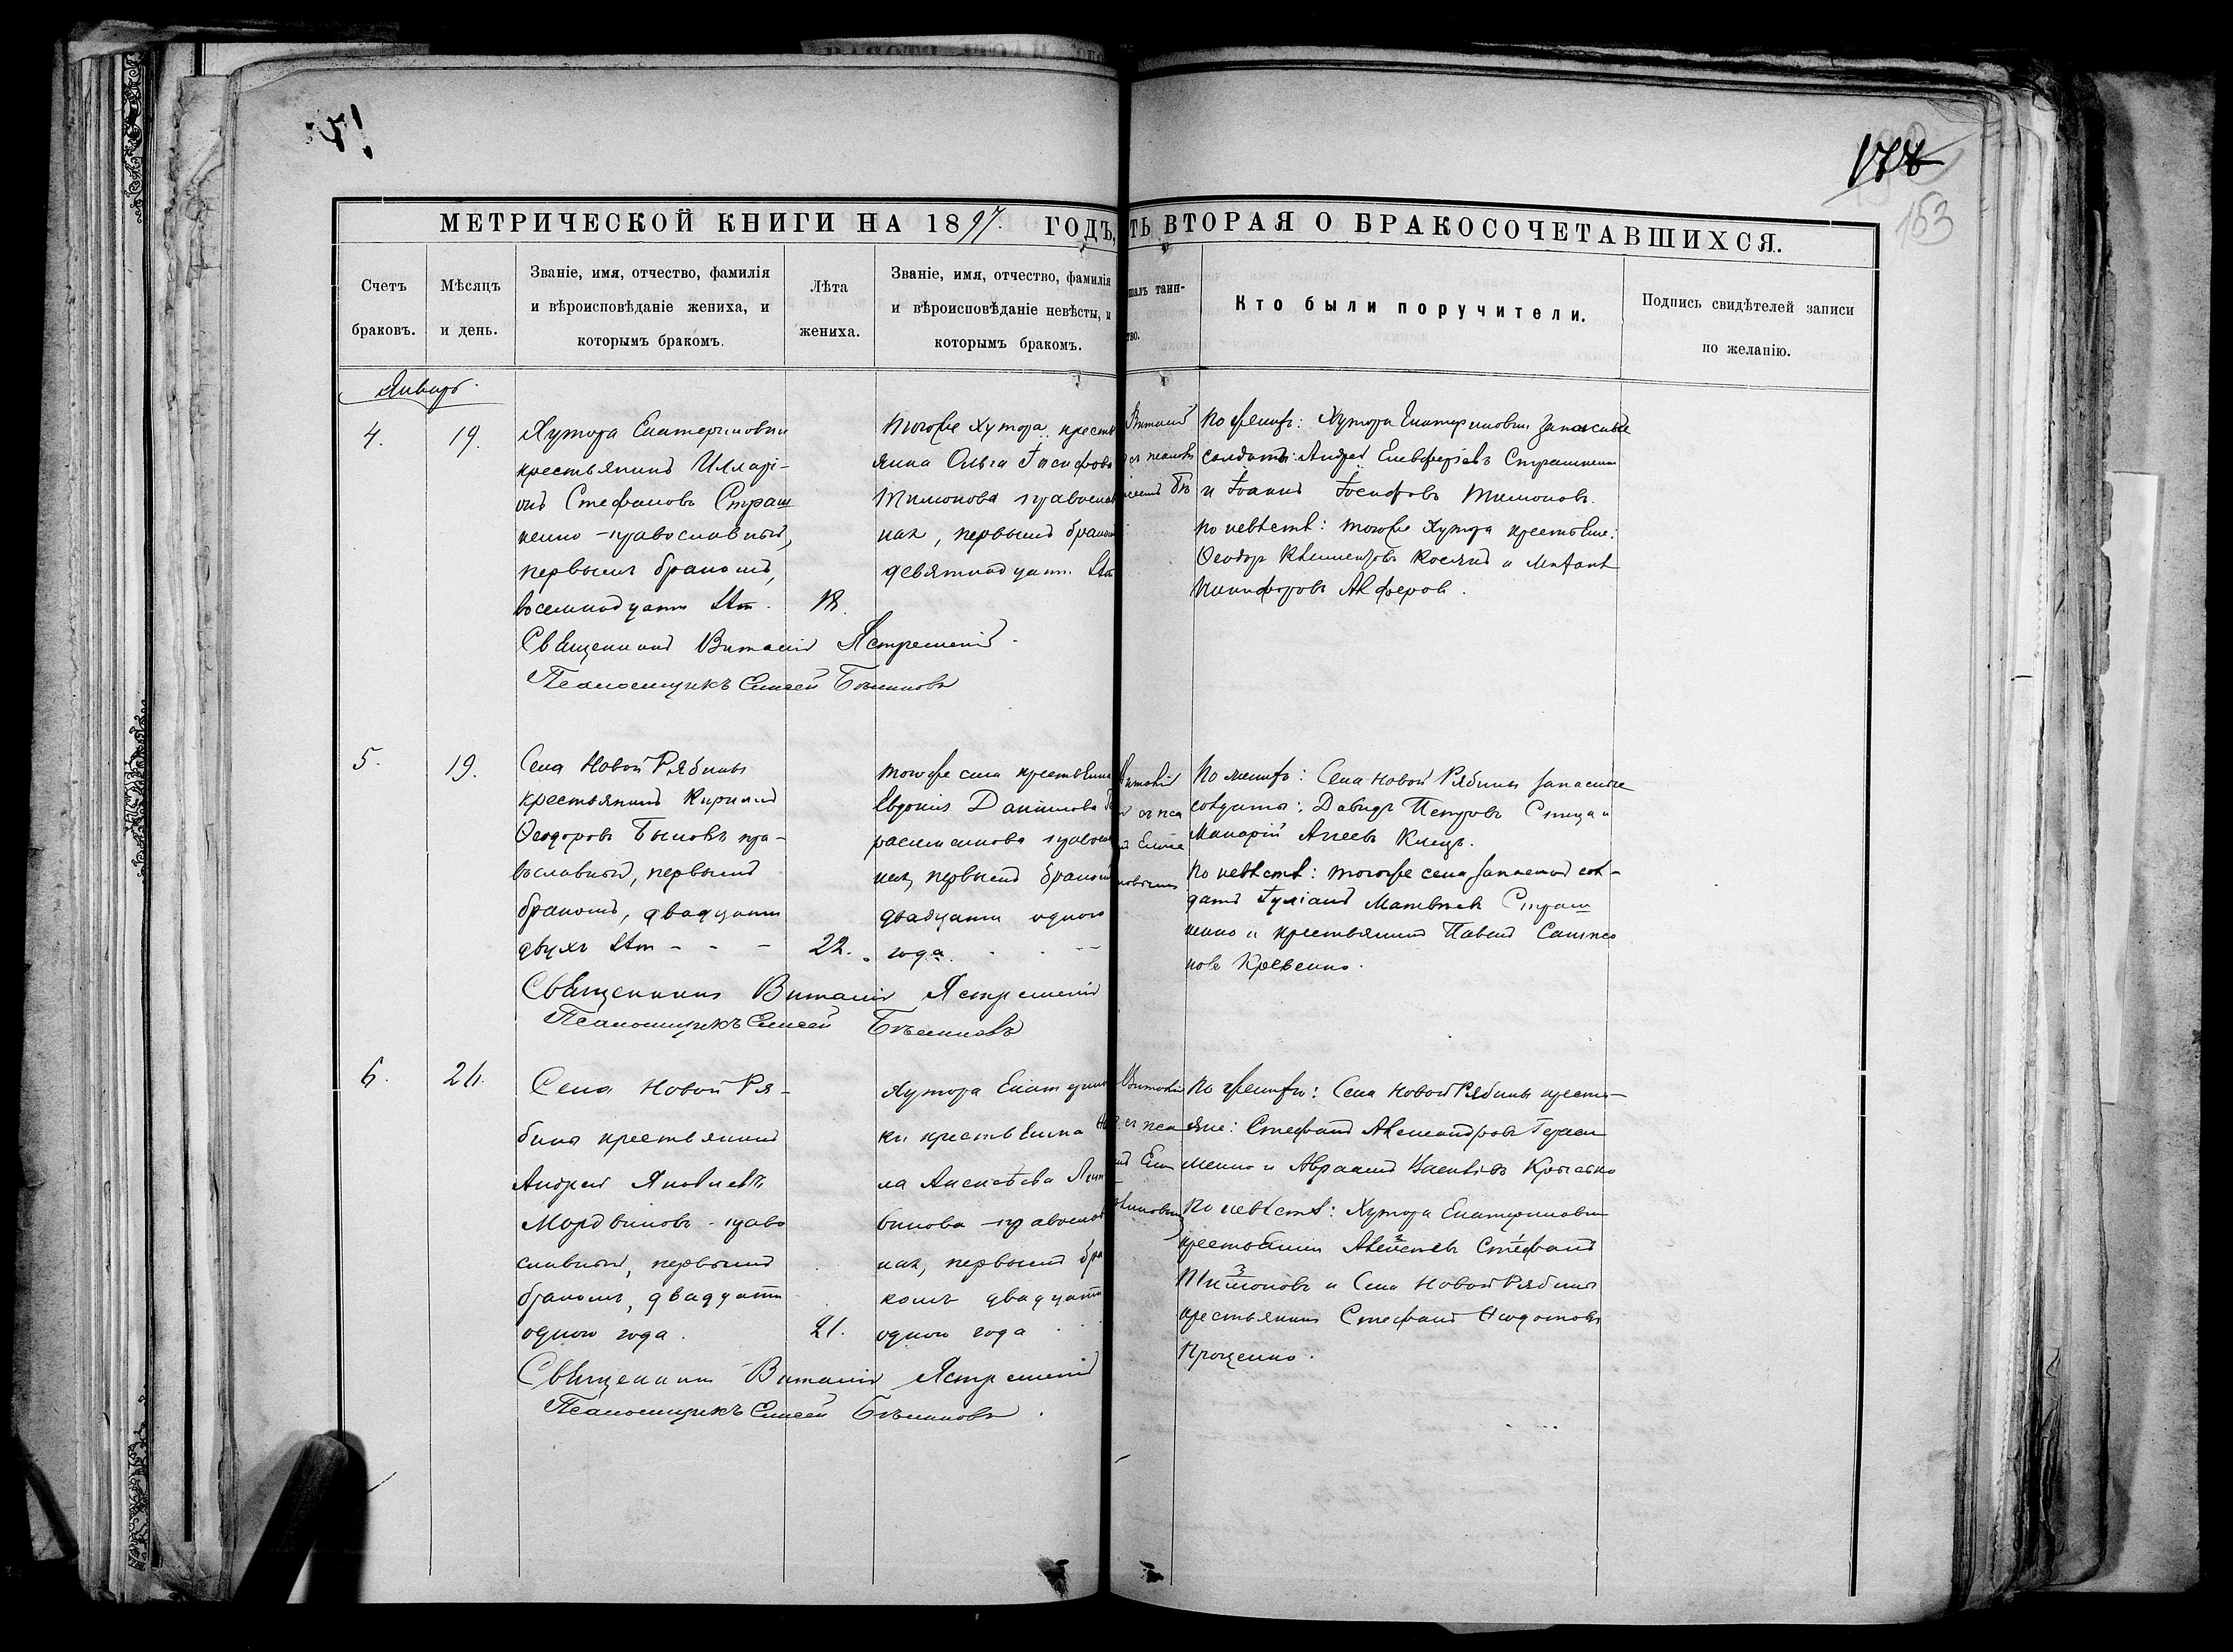 178
163
МЕТРИЧЕСКОЙ КНИГИ НА 1897. ГОДЪ,
ТЬ ВТОРАЯ О БРАКОСОЧЕТАВШИХСЯ.
Счетъ браковъ.
Мѣсяцъ и день.
Званіе, имя, отчество, фамилія
и вѣроисповѣданіе жениха, и
которымъ бракомъ.
Лѣта жениха.
Званіе, имя, отчество, фамилія
и вѣроисповѣданіе невѣсты, и
которымъ бракомъ.
шалъ таин-
тво.
Кто были поручители.
Подпись свидѣтелей записи
по желанію.
Январь.
4.
19.
Хутора Екатериновки
крестьянинъ Илларі-
онъ Стефановъ Страш
ненко - православный,
первымъ бракомъ,
восемнадцати лѣт.
18.
тогоже хутора кресть
янка Ольга Іосифова
Тимонова православ
ная, первымъ бракомъ
девятнадцати лѣт
Виталій
По женихѣ: Хутора Екатериновки запасные
солдаты: Андрей Елевферіевъ Страшненко
и Іоаннъ Іосифовъ Тимоновъ.
по невѣстѣ: тогоже хутора крестьяне:
Ѳеодоръ Климентовъ и
Никифоровъ
Священникъ Виталій Ястремскій.
Псаломщикъ Елисей
5.
19.
Села Новой Рябины
крестьянинъ Кириллъ
Ѳеодоровъ Быковъ пра-
вославный, первымъ
бракомъ, двадцати
двухъ лѣт - - -
22.
тогоже села крестьянка
Евдокія Даніилова
православ
ная, первымъ бракомъ
двадцати одного
года.
Виталій
По женихѣ: Села Новой Рябины запасные
солдаты: Давидъ Петровъ и
Макарій
По невѣстѣ: тогоже села запасной сол-
датъ Іуліанъ Матвѣевъ Страш
ненко и крестьянинъ Павелъ
новъ
Священникъ Виталій Ястремскій
Псаломщикъ Елисей
6.
26.
Села Новой Ря-
бины крестьянинъ
Андрей Яковлевъ
Мордвиновъ - право
славный, первымъ
бракомъ, двадцати
одного года.
21.
Хутора Екатерин
ки крестьянка
ла
православ
ная, первымъ бра
комъ двадцати
одного года
Виталій
По женихѣ: Села Новой Рябины кресть-
яне: Стефанъ Александровъ Гераси
менко и Авраамъ
По невѣстѣ: Хутора Екатериновки
крестьянин Алексѣевъ Стефанъ
Тимоновъ и Села Новой Рябины
крестьянинъ Стефанъ Ѳеодотовъ
Проценко.
Священникъ Виталій Ястремскій
Псаломщикъ Елисей